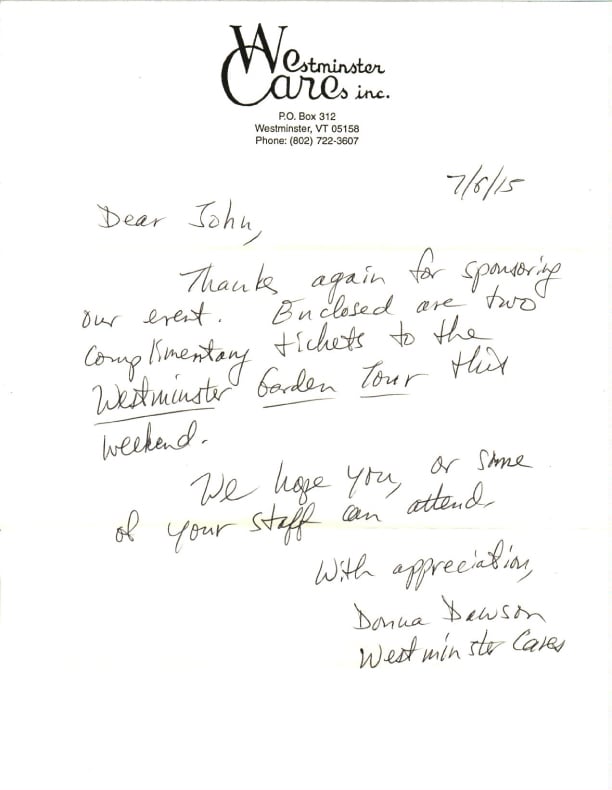 Westminster
Cares inc.
P.O. Box 312
Westminster, VT 05158
Phone: (802) 722-3607
7/6/15
Dear John,
Thanks again for sponsoring
our event. Enclosed are two
complimentary tickets to the
Westminster Garden Tour this
weekend.
We hope you, or some
of your staff can attend.
With appreciation,
Donna Dawson
Westminster Cares